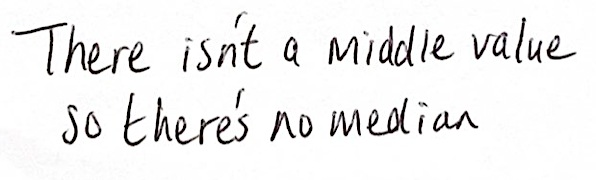 There isn't a middle value
so there's no median